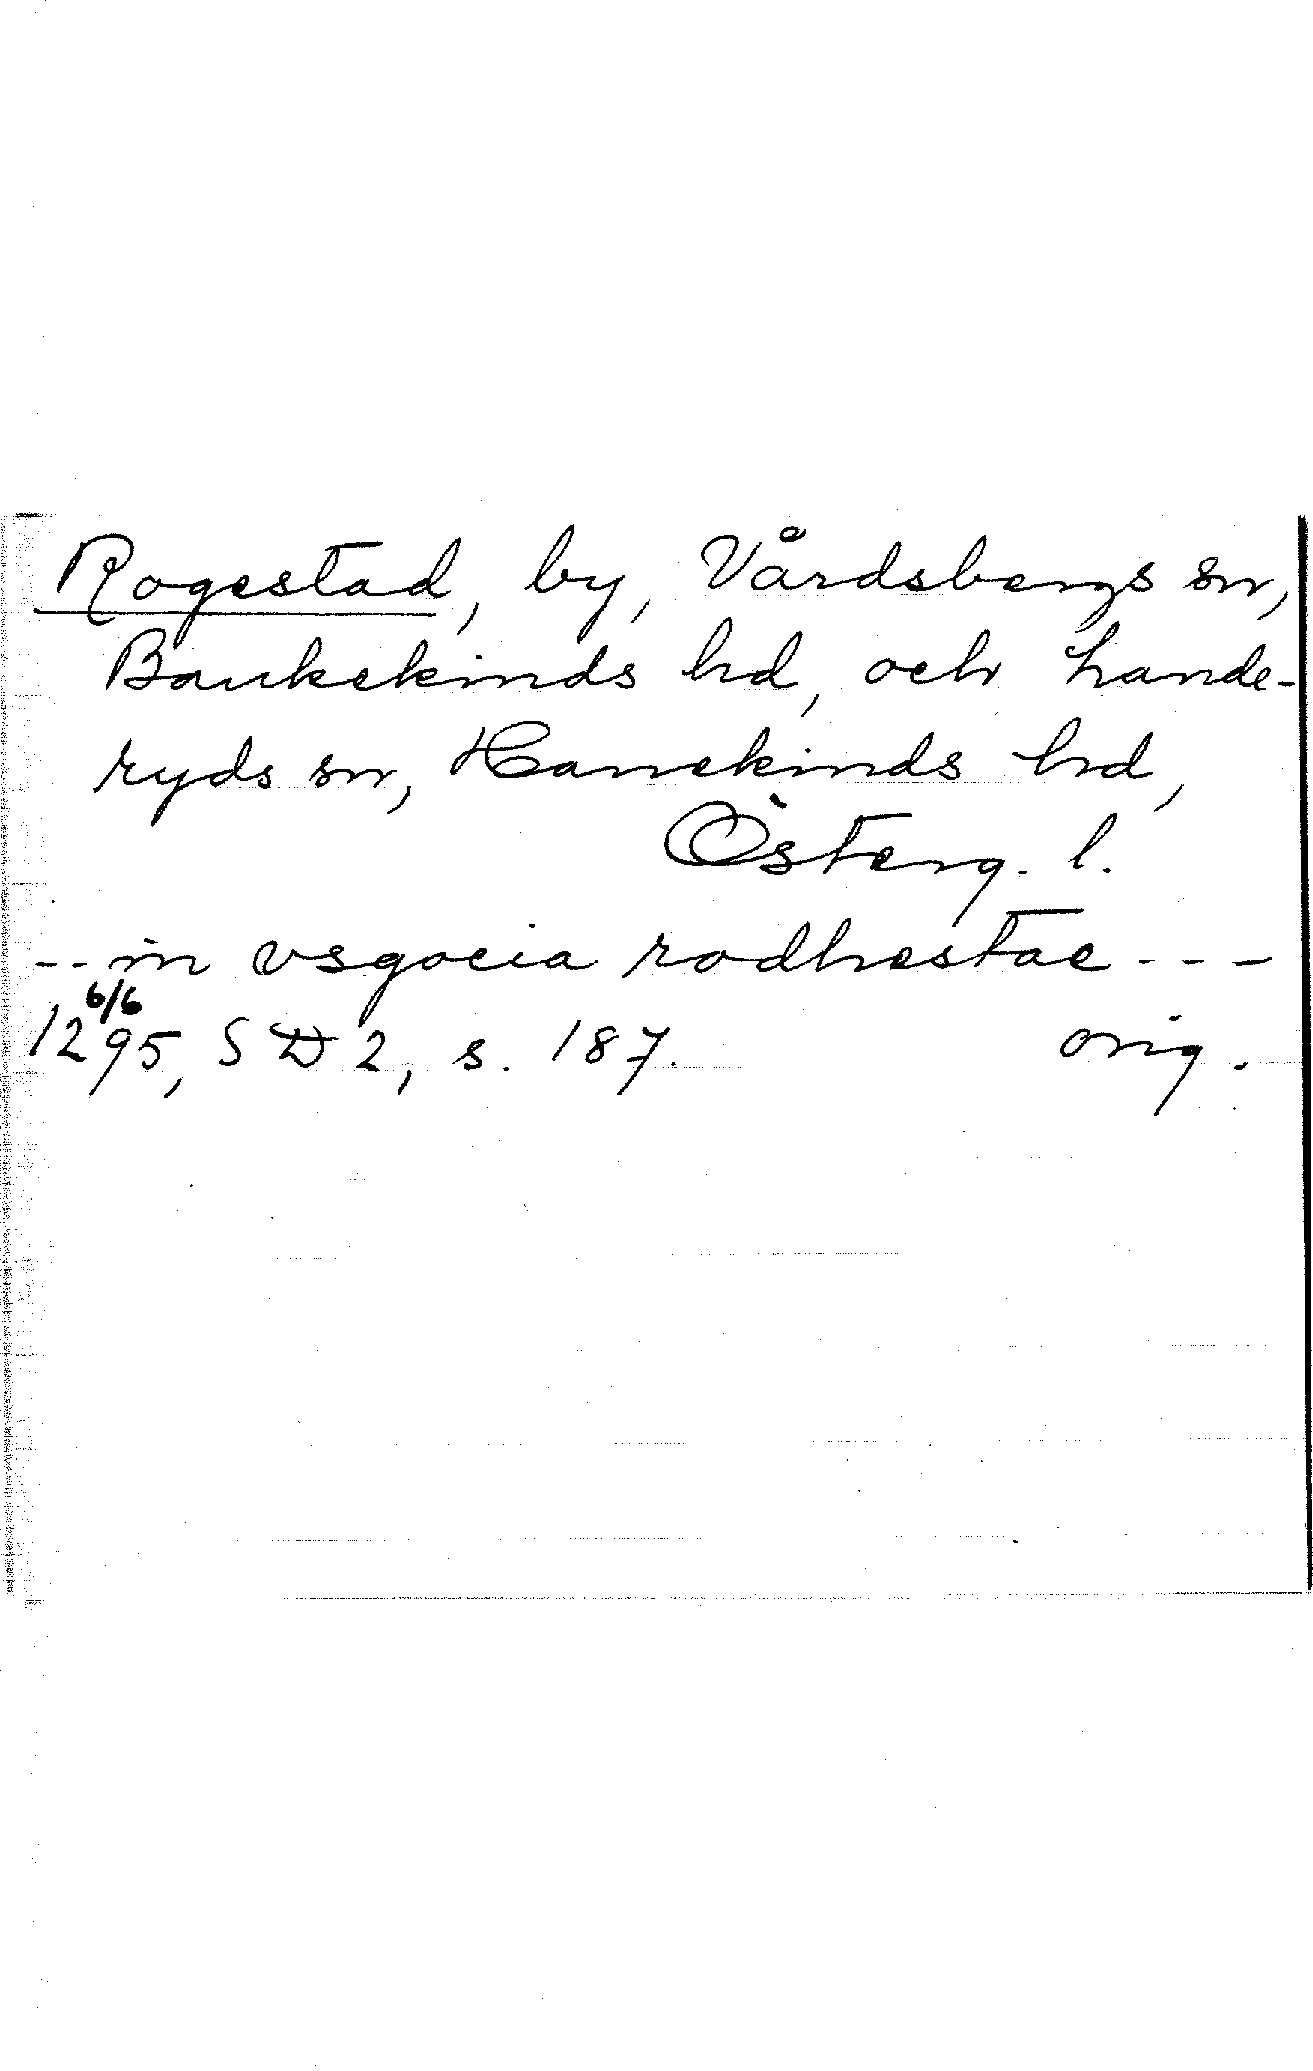 Rogestad, by, Vårdsbergs sn,
Bankekinds hd, och Lande-
ryds sn, Hanekinds hd,
Österg. l.
-- in osgocia rodhestae ---
6/6
1295, SD 2, s. 187. orig.